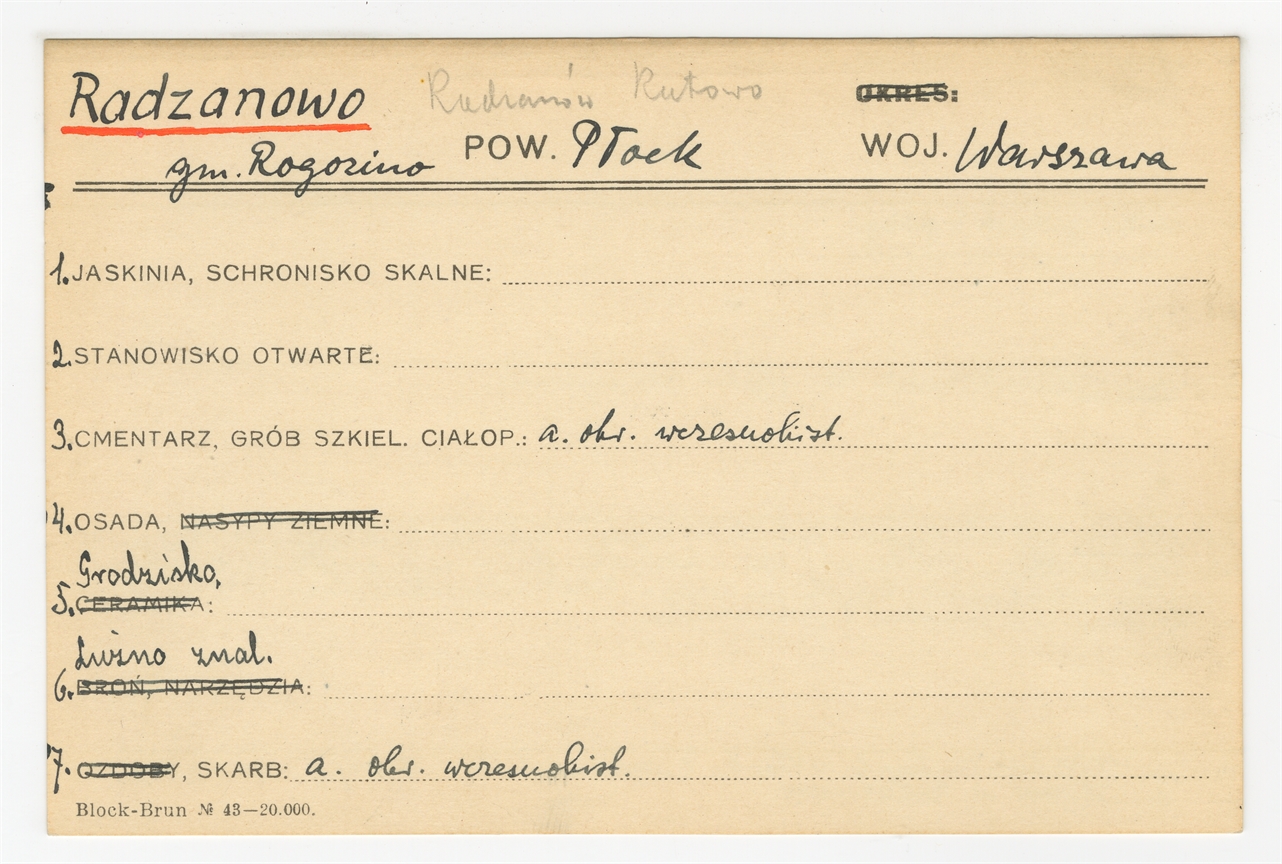 Radzanowo Radzanów Rutowo OKRES:
gm. Rogozino POW. Płock WOJ. Warszawa
1. JASKINIA, SCHRONISKO SKALNE:
2. STANOWISKO OTWARTE:
3. CMENTARZ, GRÓB SZKIEL. CIAŁOP.: a. okr. wczesnohist.
4. OSADA, NASYPY ZIEMNE:
Grodzisko,
5. CERAMIKA:
Luźno znal.
6. BROŃ, NARZĘDZIA:
7. OZDOBY, SKARB: a. okr. wczesnohist.
Block-Brun № 43—20.000.